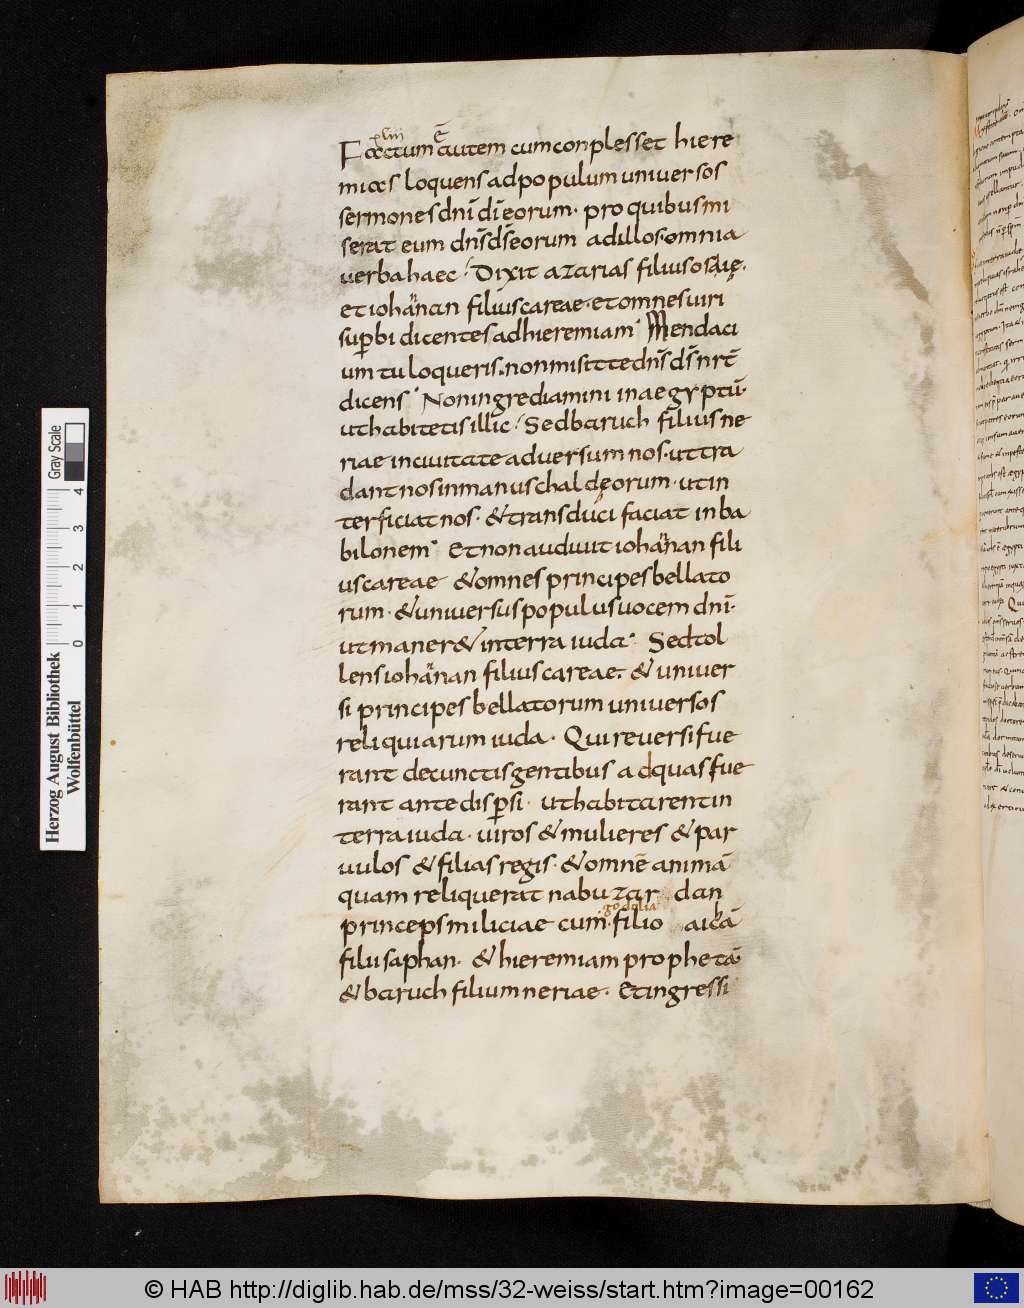 xliii
Factum ē autem cum conplesset hiere
mias loquens ad populum uniuersos
sermones dn̄i dī eorum· pro quibus mi
serat eum dn̄s ds̄ eorum ad illos· omnia
uerba haec· Dixit azarias filius osaię·
et iohannan filius careae· et omnes uiri
suꝑbi dicentes ad hieremiam· Mendaci
um tu loqueris· non misit te dn̄s ds̄ nr̄
dicens· Non ingrediamini in aegyptū·
ut habitetis illic· Sed baruch filius ne
riae incitat te aduersum nos· ut tra
dant nos in manus chaldęorum· ut in
terficiat nos· & transduci faciat in ba
bilonem· Et non audiuit iohannan fili
us careae & omnes principes bellato
rum· & uniuersus populus uocem dn̄i·
ut maner& in terra iuda· Sed tol
lens iohannan filius careae· & uniuer
si principes bellatorum uniuersos
reliquiarum iuda· Qui reuersi fue
rant de cunctis gentibus ad quas fue
rant ante disꝑsi· ut habitarent in
terra iuda· uiros & mulieres & par
uulos & filias regis· & omnē animā
quam reliquerat nabuzardan
princeps miliciae cum godolia filio aicā
filii saphan· & hieremiam prophetā·
& baruch filium neriae· Et ingressi
Herzog August Bibliothek
Wolfenbüttel
Gray Scale
0 1 2 3 4
© HAB http://diglib.hab.de/mss/32-weiss/start.htm?image=00162